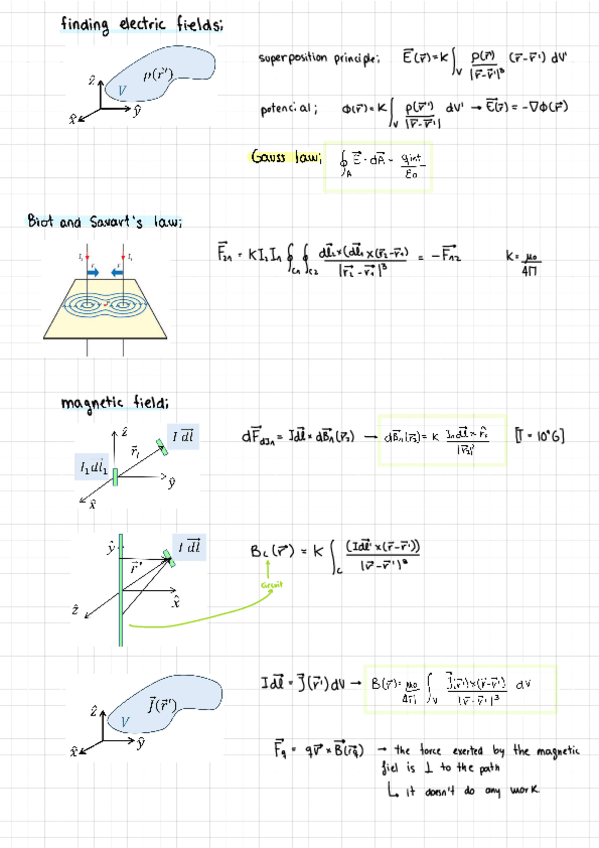 finding electric fields;
ẑ
ρ(r⃗')
V
x̂ ŷ
superposition principle; E⃗(r⃗) = K ∫_V ρ(r⃗')/|r⃗-r⃗'|³ (r⃗-r⃗') dV'
potencial; Φ(r⃗) = K ∫_V ρ(r⃗')/|r⃗-r⃗'| dV' → E⃗(r⃗) = -∇Φ(r⃗)
Gauss law; ∮_A E⃗ · dA⃗ = qint/ε₀
Biot and Savart's law;
F⃗₂₁ = K I₂ I₁ ∮_C1 ∮_C2 dl⃗₂ × (dl⃗₁ × (r⃗₂-r⃗₁))/|r⃗₂-r⃗₁|³ = -F⃗₁₂ K = μ₀/4π
magnetic field;
ẑ
I dl⃗
r⃗₁
I₁ dl⃗₁
ŷ
x̂
dF⃗_dI₁ = Idl⃗ × dB⃗₁(r⃗₁) → dB⃗₁(r⃗₁) = K I₁dl⃗ × r̂₁/|r⃗₁|² [T = 10⁴G]
ŷ
I dl⃗
r⃗'
ẑ x̂
B_C(r⃗) = K ∫_C (Idl⃗' × (r⃗-r⃗'))/|r⃗-r⃗'|³
circuit
ẑ
J⃗(r⃗')
V
x̂ ŷ
Idl⃗ = J⃗(r⃗')dV → B(r⃗) = μ₀/4π ∫_V J⃗(r⃗')×(r⃗-r⃗')/|r⃗-r⃗'|³ dV
F⃗q = qv⃗ × B⃗(r⃗q) → the force exerted by the magnetic
fiel is ⊥ to the path
↳ it doesn't do any work